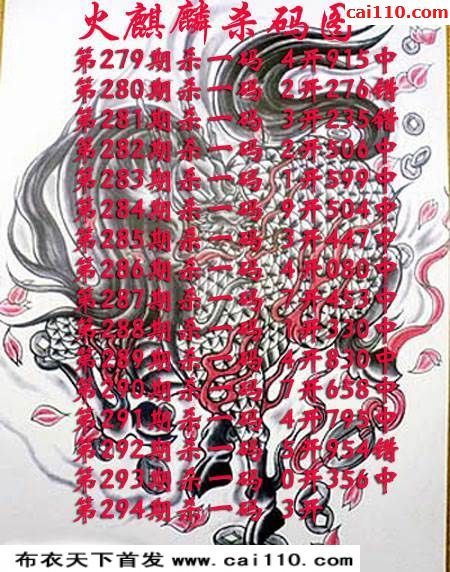 cai110.com
火麒麟杀码图
第279期杀一码 4开915中
第280期杀一码 2开276错
第281期杀一码 3开235错
第282期杀一码 2开506中
第283期杀一码 1开599中
第284期杀一码 9开504中
第285期杀一码 3开447中
第286期杀一码 4开080中
第287期杀一码 7开453中
第288期杀一码 1开330中
第289期杀一码 4开830中
第290期杀一码 7开658中
第291期杀一码 4开795中
第292期杀一码 5开954错
第293期杀一码 0开356中
第294期杀一码 3开
布衣天下首发 www.cai110.com